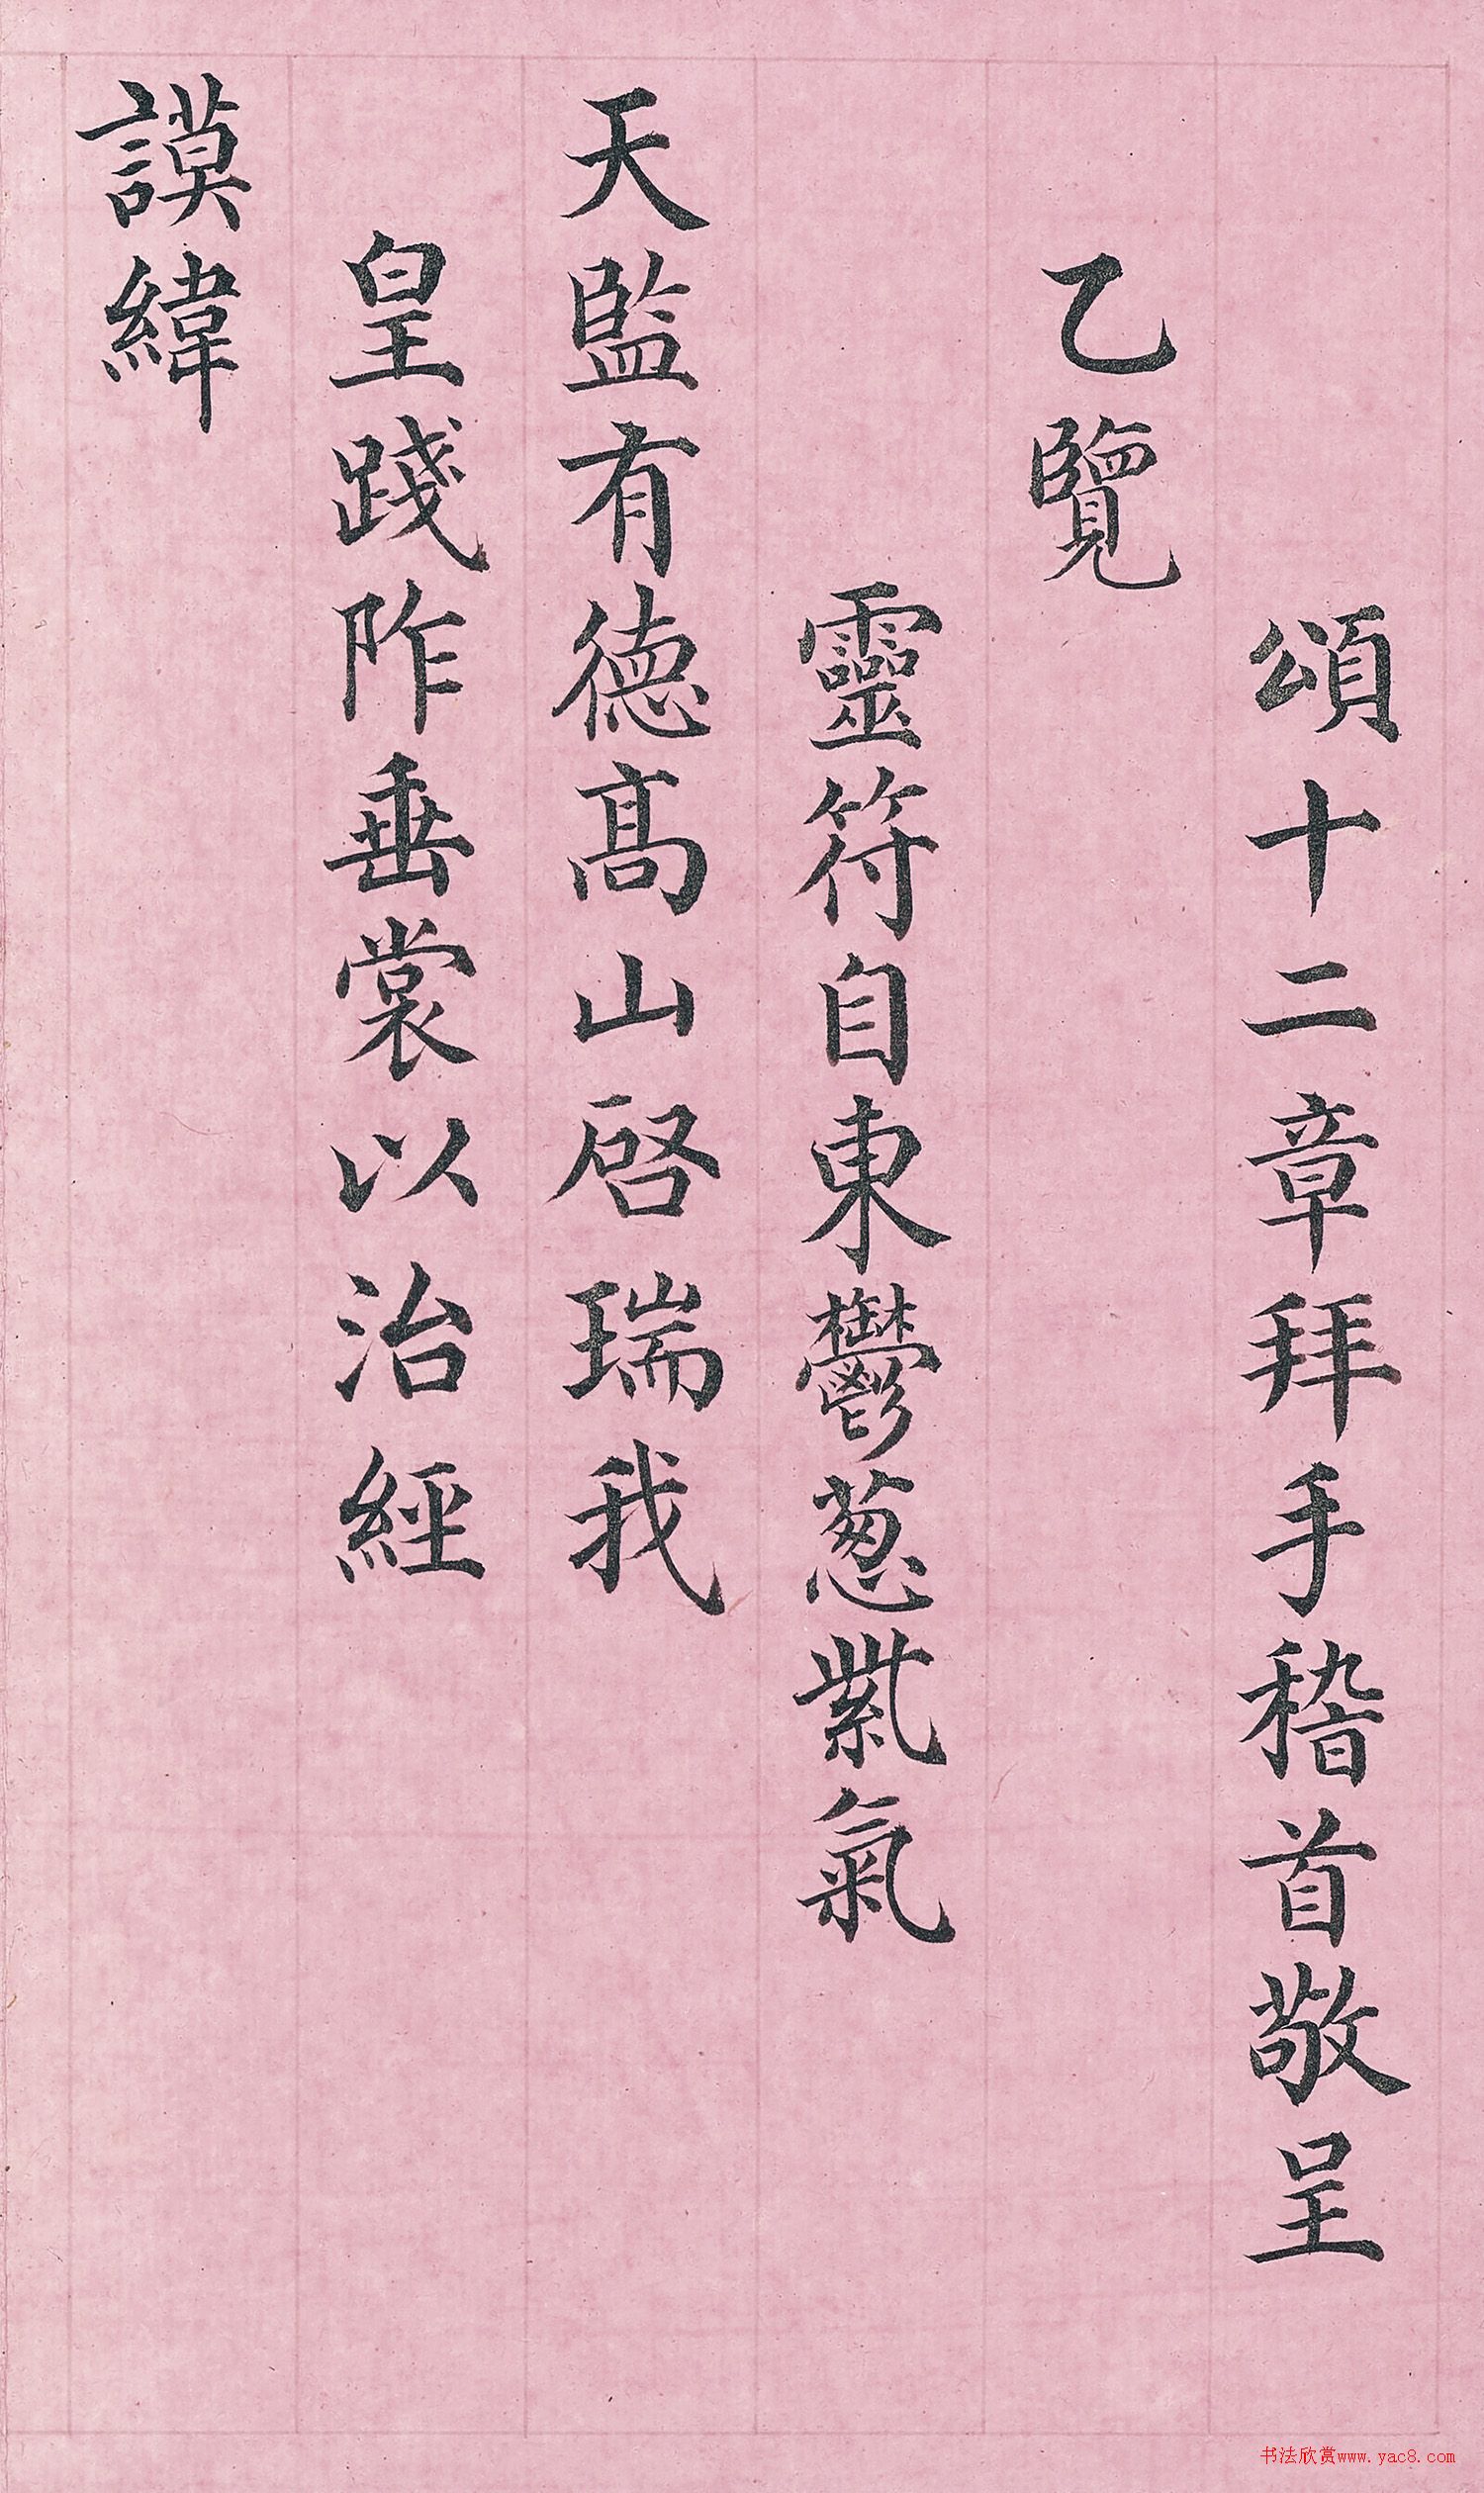 頌十二章拜手稽首敬呈
乙覽
靈符自東鬱葱紫氣
天監有德高山啓瑞我
皇踐阼垂裳以治經
謨緯
书法欣赏www.yac8.com